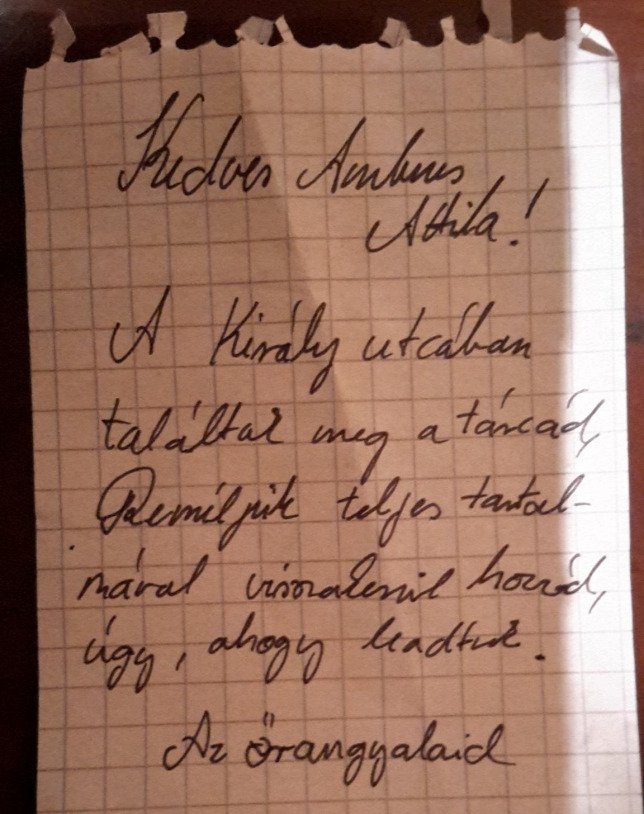 Kedves Ambrus
Attila!
A Király utcában
találtuk meg a tárcád,
Reméljük teljes tartal-
mával visszakerül hozzád,
úgy, ahogy leadtuk.
Az őrangyalaid